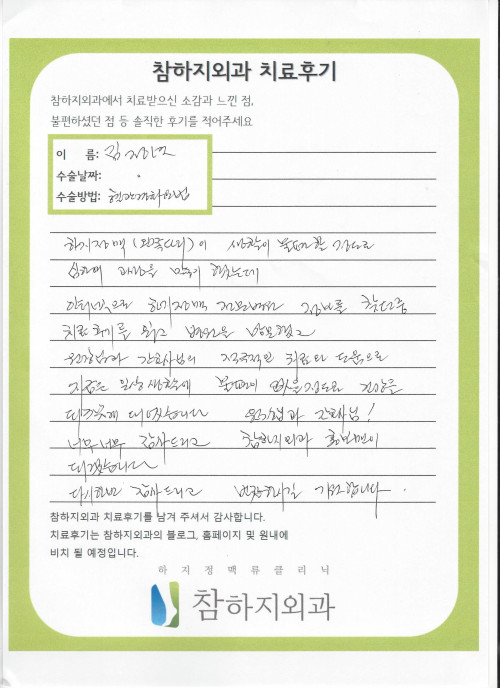 참하지외과 치료후기
참하지외과에서 치료받으신 소감과 느낀 점,
불편하셨던 점 등 솔직한 후기를 적어주세요
이 름: 김
수술날짜: .
수술방법: 혈관경화요법
하지정맥 (왼쪽다리)이 생활이 불편할 정도로
심하여 고생을 많이 했는데
인터넷으로 하지정맥 전문병원 정보를 찾던중
치료후기를 읽고 병원을 방문했고
원장님과 간호사님의 적극적인 치료와 도움으로
지금은 일상생활에 불편이 없을정도로 건강을
되찾게 되었습니다 원장님과 간호사님!
너무너무 감사드리고 참하지외과 홍보맨이
되겠습니다
다시한번 감사드리고 번창하시길 기원합니다.
참하지외과 치료후기를 남겨 주셔서 감사합니다.
치료후기는 참하지외과의 블로그, 홈페이지 및 원내에
비치 될 예정입니다.
하지정맥류클리닉
참하지외과